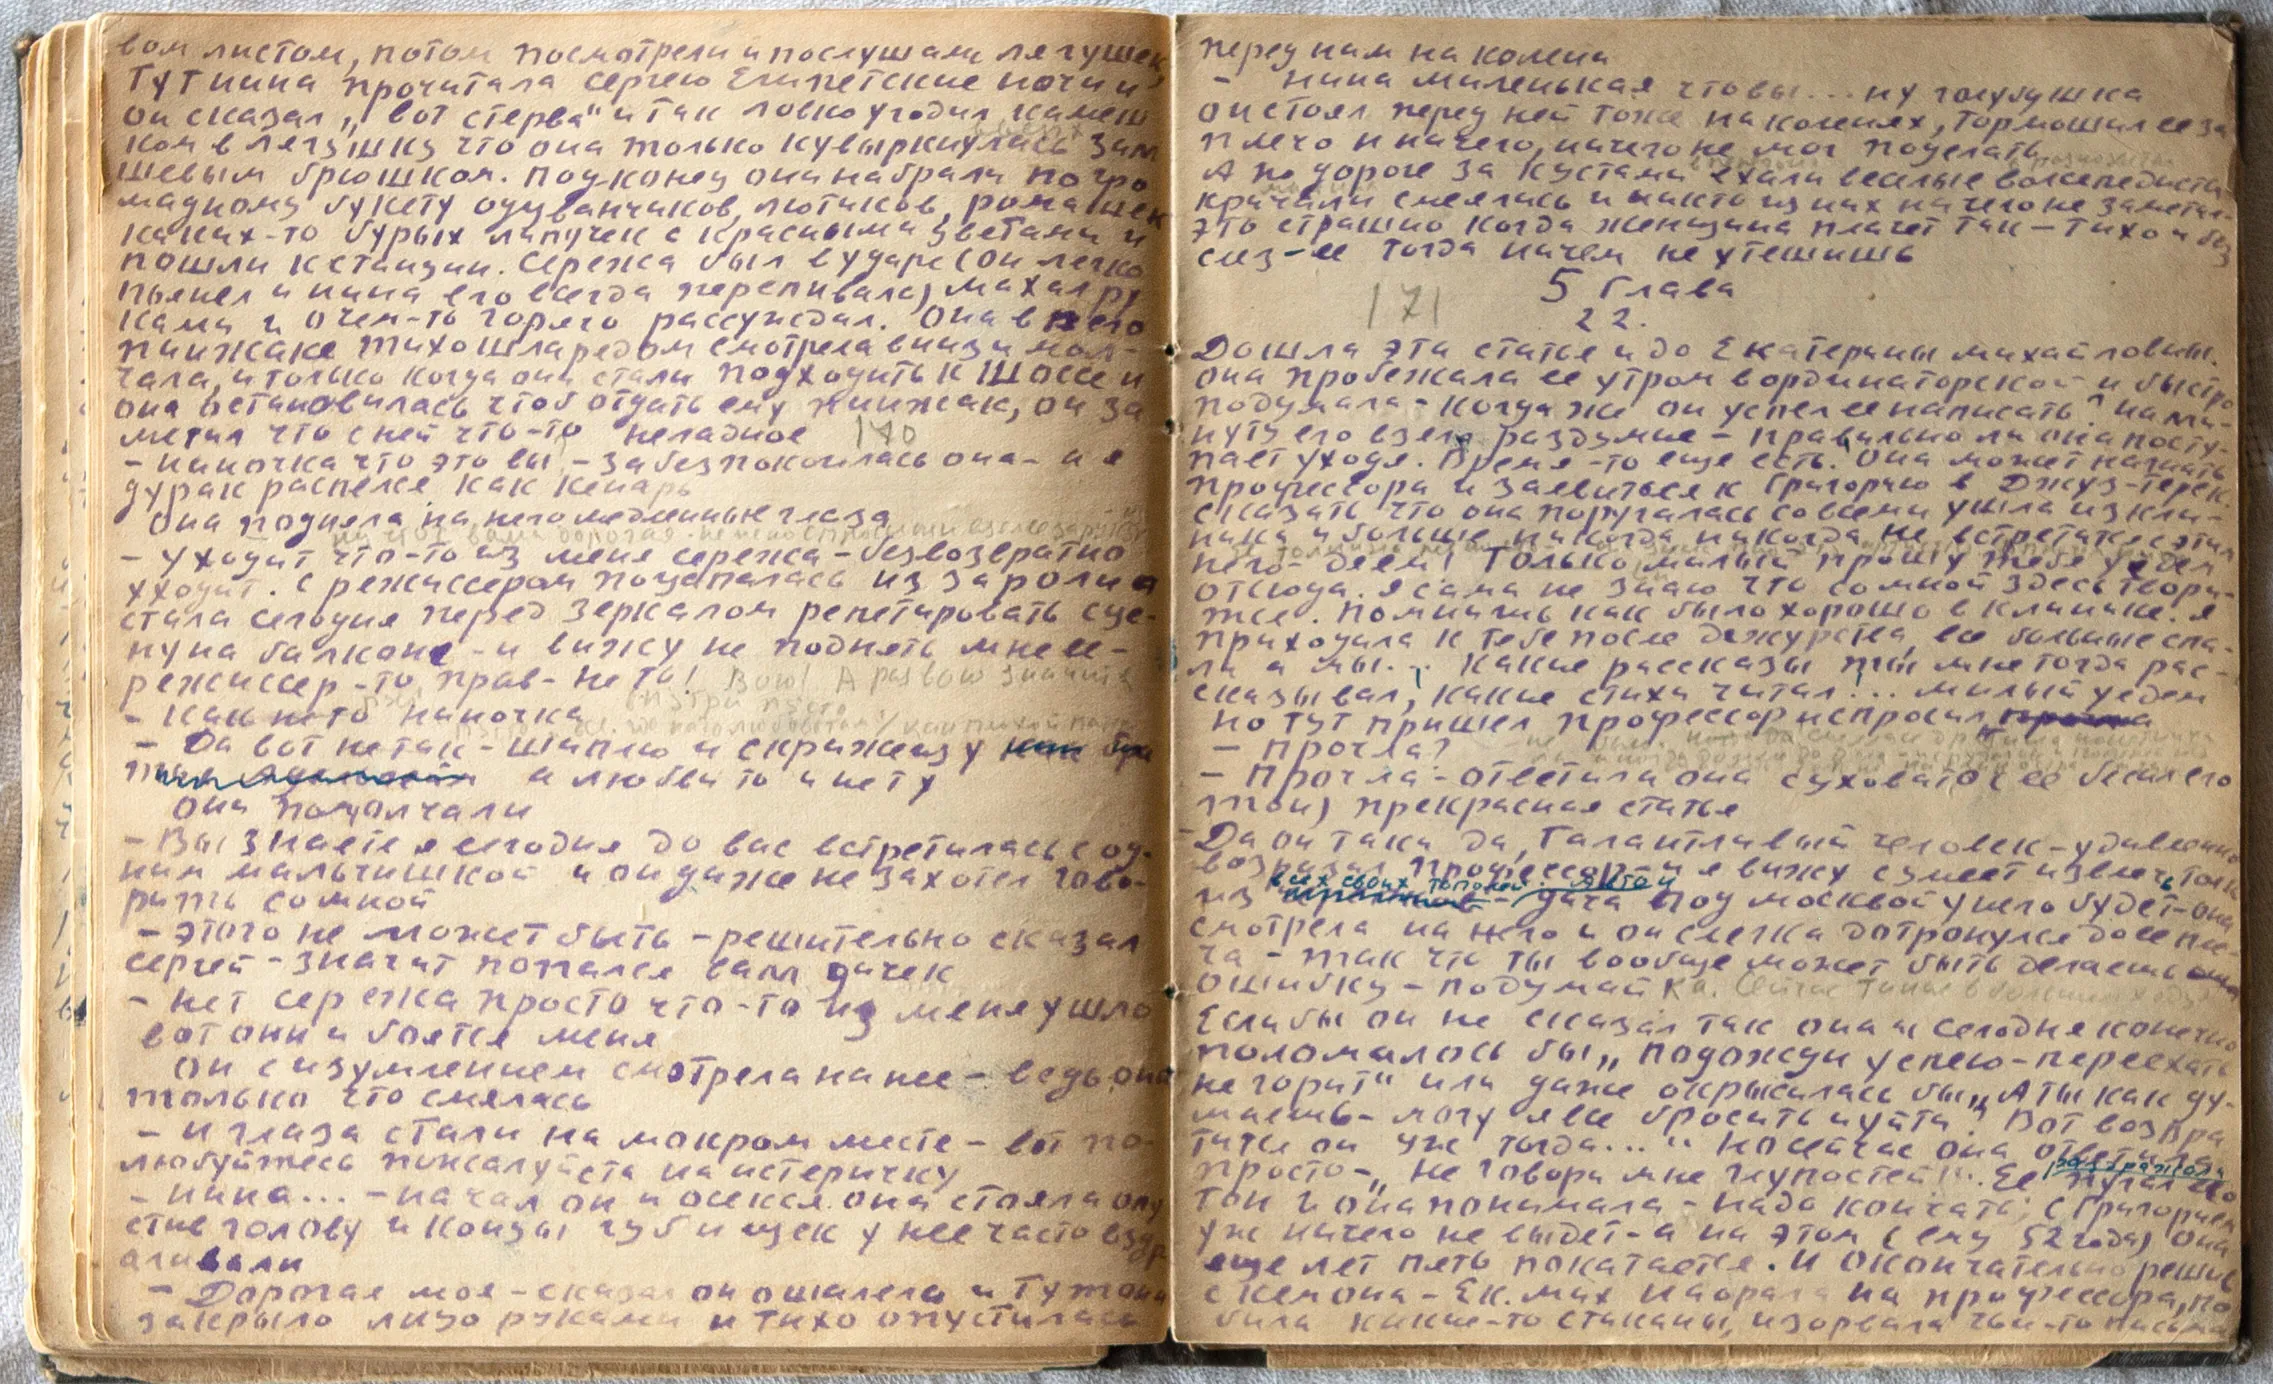 вом листом, потом посмотрели и послушали лягушек
Тут нина прочитала сергею Египетские ночи и
он сказал „ вот стерва" и так ловко угодил камеш
ком в лягушку что она только кувыркнулась зам
шевым брюшком. под конец они набрали по гро
мадному букету одуванчиков, лютиков, ромашек
каких-то бурых липучек с красными цветами и
пошли к станции. Сережа был в ударе (он легко
пьянел и нина его всегда перепивала) махал ру
ками и о чем-то горячо рассуждал. Она в его
пиджаке тихо шла рядом смотрела вниз и мол-
чала, и только когда они стали подходить к шоссе и
она остановилась чтоб отдать ему пиджак, он за
метил что с ней что-то неладное 170
- ниночка что это вы - забеспокоилась она - и я
дурак распелся как кенарь
Она подняла на него медленные глаза
- уходит что-то из меня сережа - безвозвратно
уходит. с режиссером поцапалась из за роли а
стала сегодня перед зеркалом репетировать сце-
ну на балконе - и вижу не поднять мне ее -
режиссер-то прав - не та! Вою! А раз вою значит
внутри пусто
- как не то ниночка
- Да вот не так - шиплю и скрижещу
а любви то и нету
они помолчали
- Вы знаете я сегодня до вас встретилась с од-
ним мальчишкой и он даже не захотел гово-
рить со мной
- этого не может быть - решительно сказал
сергей - значит попался вам дичек
- нет сережа просто что-то из меня ушло
вот они и боятся меня
он с изумлением смотрела на нее - ведь она
только что смеялась
- и глаза стали на мокром месте - вот по-
любуйтесь пожалуйста на истеричку
- нина... - начал он и осекся. она стояла опу
стив голову и концы губ и щек у нее часто вздр
агивали
- Дорогая моя - сказал он ошалело и тут она
закрыло лицо руками и тихо опустилась
перед ним на колени
- нина миленькая что вы... ну голубушка
он стоял перед ней тоже на коленях, тормошил ее за
плечо и ничего, ничего не мог поделать
А по дороге за кустами ехали веселые велосипедисты
кричали смеялись и никто из них ничего не заметил
это страшно когда женщина плачет так - тихо и без
слез - ее тогда ничем не утешишь
5 глава
171
22.
Дошла эта статья и до Екатерины михайловны.
она пробежала ее утром в ординаторской и быстро
подумала - когда же он успел ее написать? на ми-
нуту его взяло раздумие - правильно ли она посту-
пает уходя. Время-то еще есть. Она может нагнать
профессора и заявиться к Григорию в Джуз-терек
сказать что она поругалась со всеми ушла из кли-
ники и больше никогда никогда не встретится с этим
него - деем! только, милый прошу тебя уедем
отсюда. Я сама не знаю что со мной здесь твори-
тся. Помнишь как было хорошо в клинике. я
приходила к тебе после дежурства, все больные спа-
ли а мы... какие рассказы ты мне тогда рас-
сказывал, какие стихи читал... милый уедем
но тут пришел профессор и спросил
- прочла?
- прочла - ответила она суховато (ее бесил его
тон) прекрасная статья
- Да он таки да, талантливый человек - удивленно
возразил профессор - и я вижу сумеет извлечь толк
всех своих тополей
из - дача под москвой у него будет - она
смотрела на него и он слегка дотронулся до ее пле-
ча - так что ты вообще может быть делаешь
ошибку - подумай ка.
Если бы он не сказал так она и сегодня конечно
поломалось бы „ подожди успею - переехать
не горит" или даже окрысилась бы „ А ты как ду-
маешь - могу я все бросить и уйти? Вот возвра
тится он уж тогда... " но сейчас она ответила
просто - „ не говори мне глупостей!". Ее раздражал его
тон и она понимала - надо кончать; с Григорием
уж ничего не выдет - а на этом (ему 52 года) она
еще лет пять покатается. И окончательно решив
с кем она - Ек. мих наорала на профессора, по
била какие-то стаканы, изорвала чьи-то письма